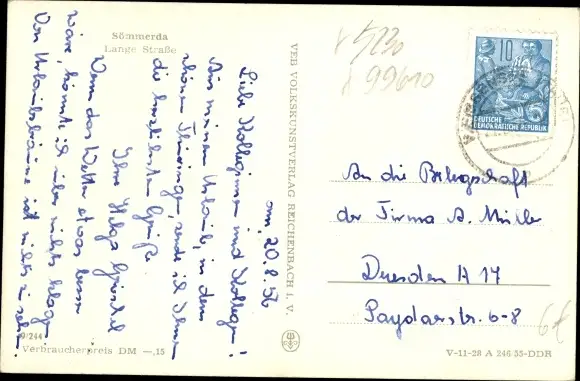 Sömmerda
Lange Straße
am, 20.8.56
Liebe Kolleginnen und Kollegen!
Aus meinem Urlaub, in dem
schönen Thüringen, sende ich Ihnen
die herzlichsten Grüße.
Ihre Helga
Wenn das Wetter etwas besser
wäre, könnte ich über nichts klagen.
Von Urlaubsbräune ist nichts zu sehen.
9/244
Verbraucherpreis DM —,15
VEB VOLKSKUNSTVERLAG REICHENBACH i. V.
V 5230
99610
10
DEUTSCHE
DEMOKRATISCHE REPUBLIK
An die Belegschaft
der Firma A. Müller
Dresden A 17
Paydarstr. 6-8
6€
V-11-28 A 246 55-DDR